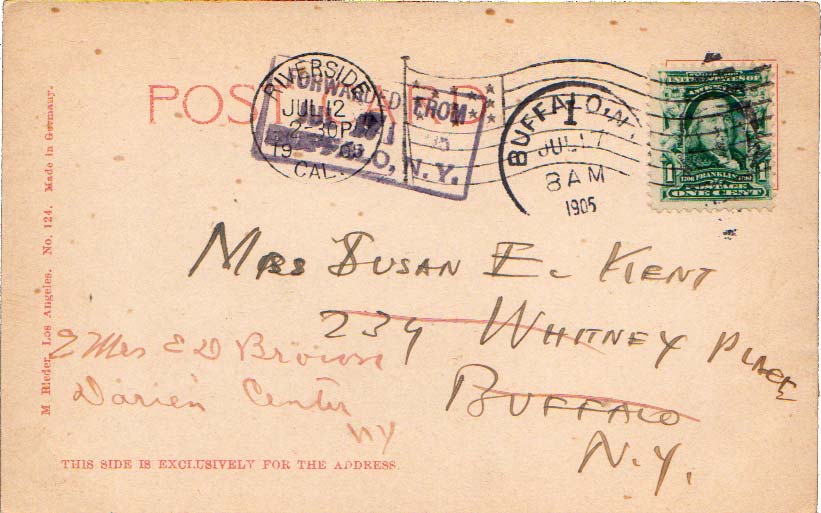 POST CARD
RIVERSIDE
JUL 12
2-30P
1905
CAL.
FORWARDED FROM
BUFFALO, N.Y.
BUFFALO, N.Y.
1
JUL 17
8 AM
1905
1706 FRANKLIN 1790
POSTAGE
ONE CENT
Mrs Susan E. Kent
234 Whitney Place
Buffalo
N.Y.
% Mrs E D Brown
Darien Center
NY
M Rieder, Los Angeles. No. 124. Made in Germany.
THIS SIDE IS EXCLUSIVELY FOR THE ADDRESS.